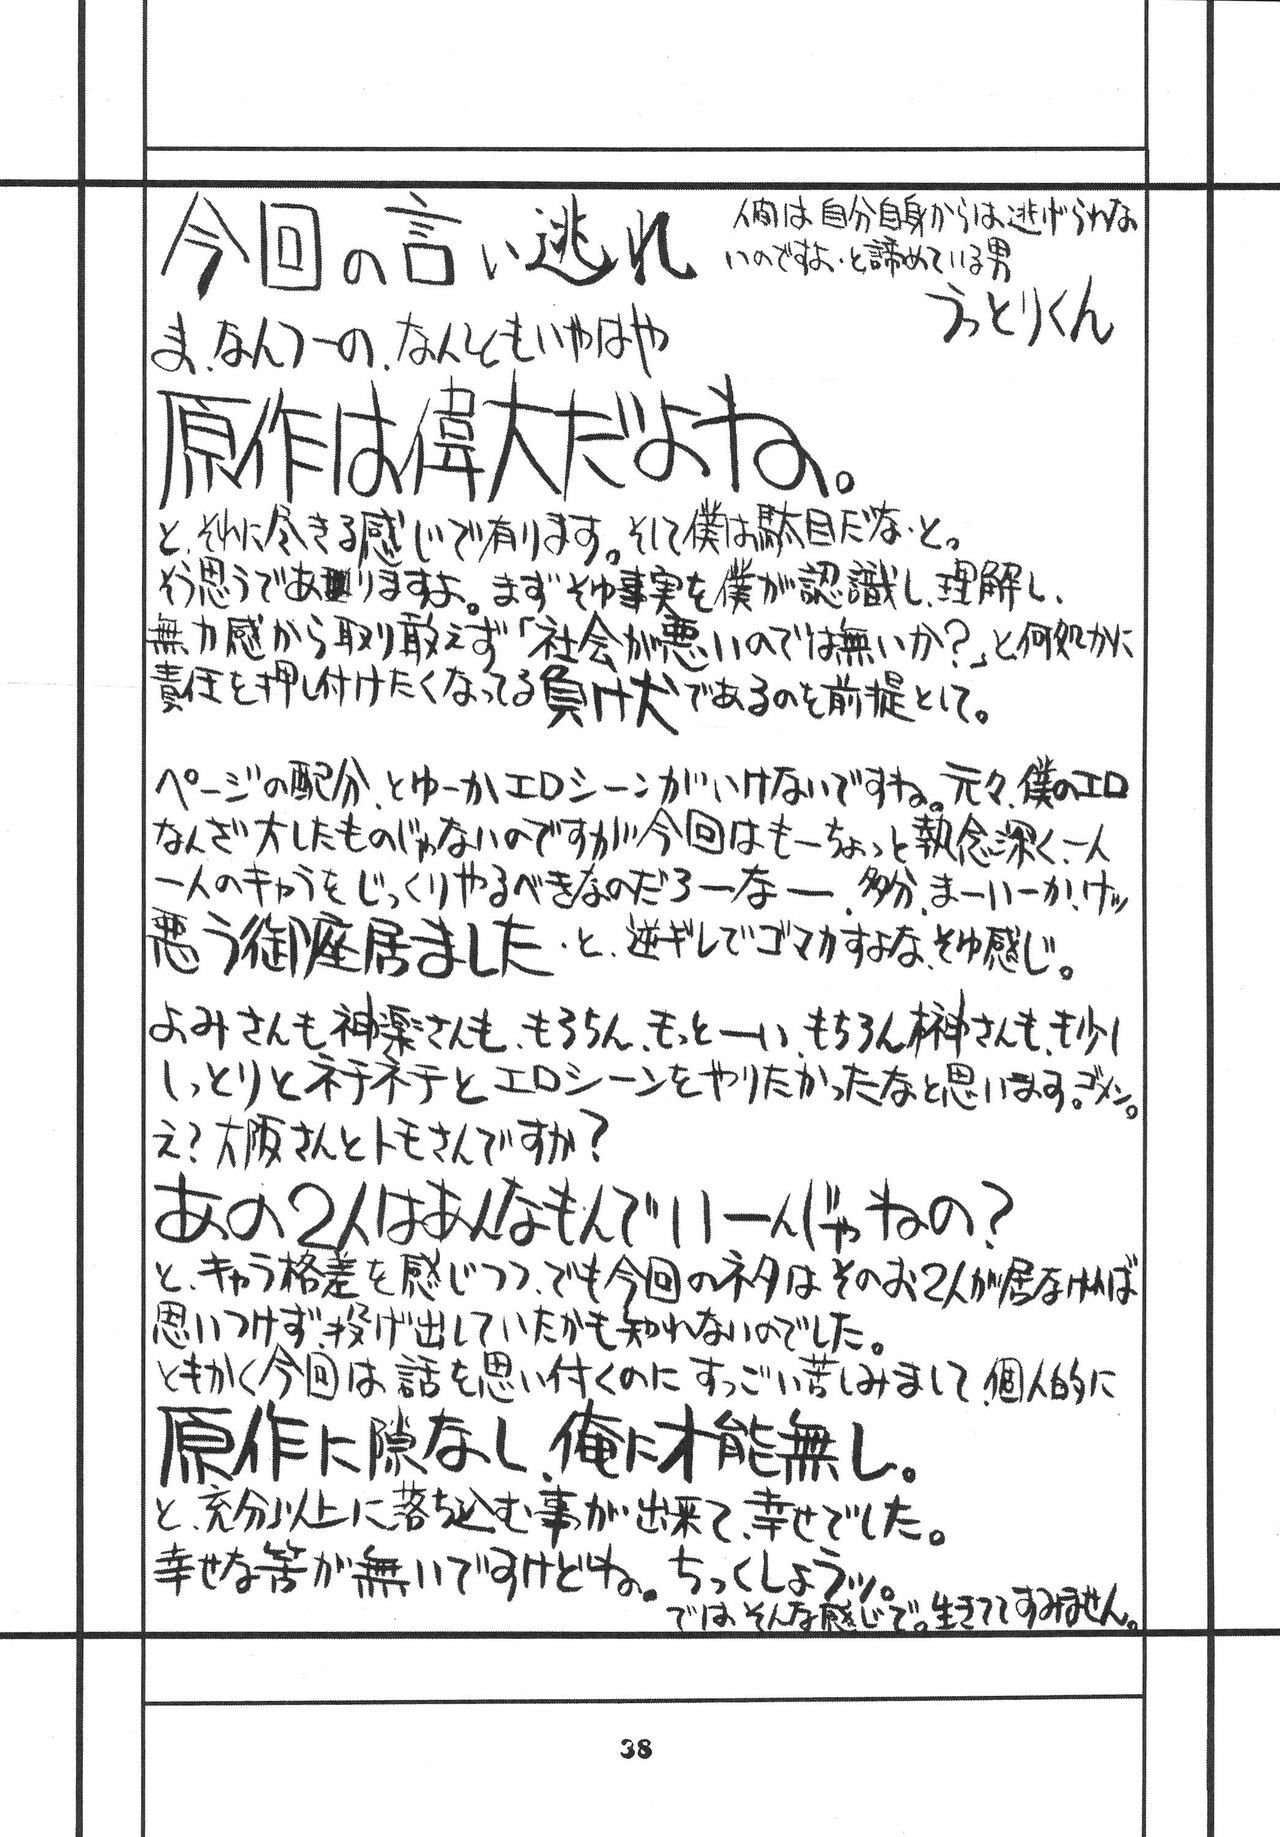 今回の言い逃れ
人間は自分自身からは逃げられな
いのですよ・と諦めている男
うっとりくん
ま、なんつーの、なんともいやはや
原作は偉大だよね。
と、それに尽きる感じで有ります。そして僕は駄目だな・と。
そう思うでありますよ。まずそゆ事実を僕が認識し、理解し、
無力感から取り敢えず「社会が悪いのでは無いか?」と何処かに
責任を押し付けたくなってる負け犬であるのを前提として。
ページの配分、とゆーかエロシーンがいけないですね。元々、僕のエロ
なんざ大したものじゃないのですが今回はもーちょっと執念深く、一人
一人のキャラをじっくりやるべきなのだろーなー、多分、まーいーか、ケッ
悪う御座居ました・と、逆ギレでゴマカすよな、そゆ感じ。
よみさんも神楽さんも、もろちん、もっとーい、もちろん榊さんも、も少し
しっとりとネチネチとエロシーンをやりたかったなと思います。ゴメン。
え?大阪さんとトモさんですか?
あの2人はあんなもんでいーんじゃねの?
と、キャラ格差を感じつつ、でも今回のネタはそのお2人が居なければ
思いつけず、投げ出していたかも知れないのでした。
ともかく今回は話を思い付くのにすっごい苦しみまして、個人的に
原作に隙なし、俺に才能無し。
と、充分以上に落ち込む事が出来て、幸せでした。
幸せな筈が無いですけどね。ちっくしょうッ。
では、そんな感じで。生きててすみません。
38